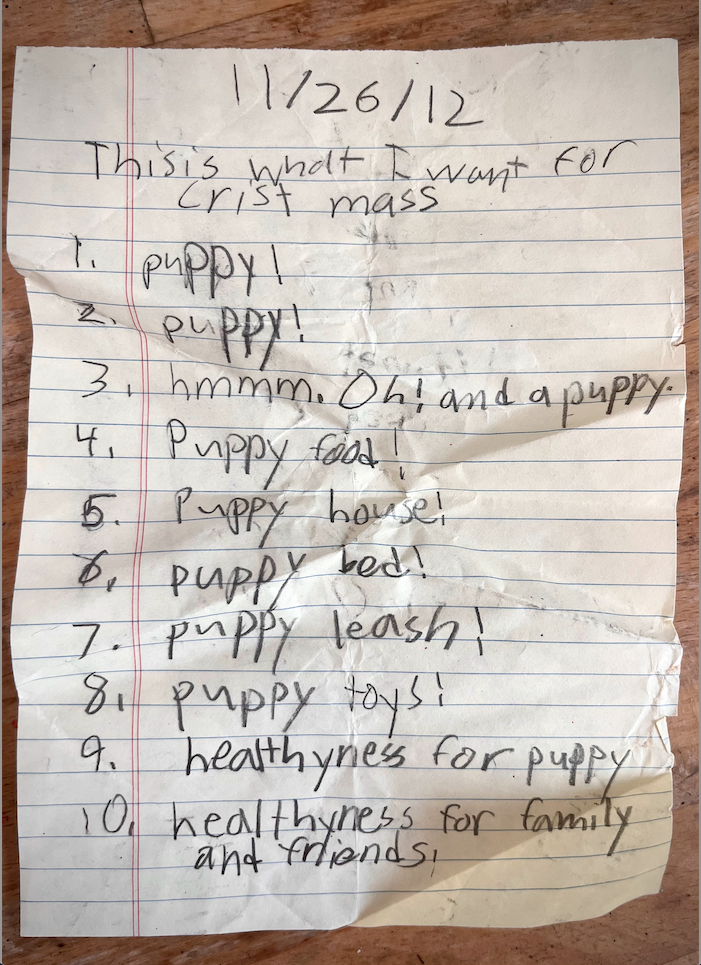 11/26/12
Thisis what I want for
Crist mass
1. puppy!
2. puppy!
3. hmmm. Oh! and a puppy.
4. Puppy food!
5. Puppy house!
6. puppy bed!
7. puppy leash!
8. puppy toys!
9. healthyness for puppy
10. healthyness for family
and friends.